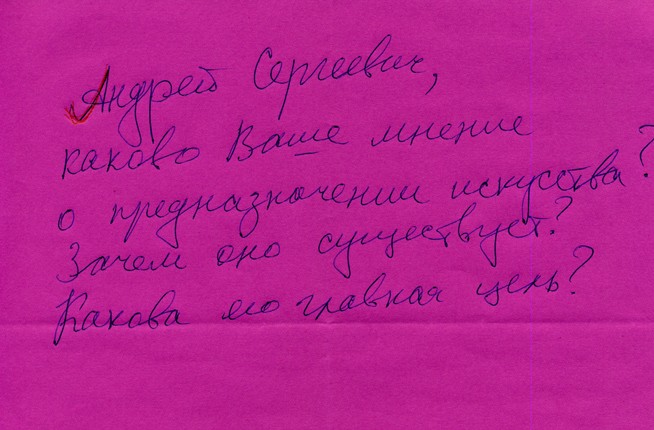 Андрей Сергеевич,
каково Ваше мнение
о предназначении искусства?
Зачем оно существует?
Какова его главная цель?